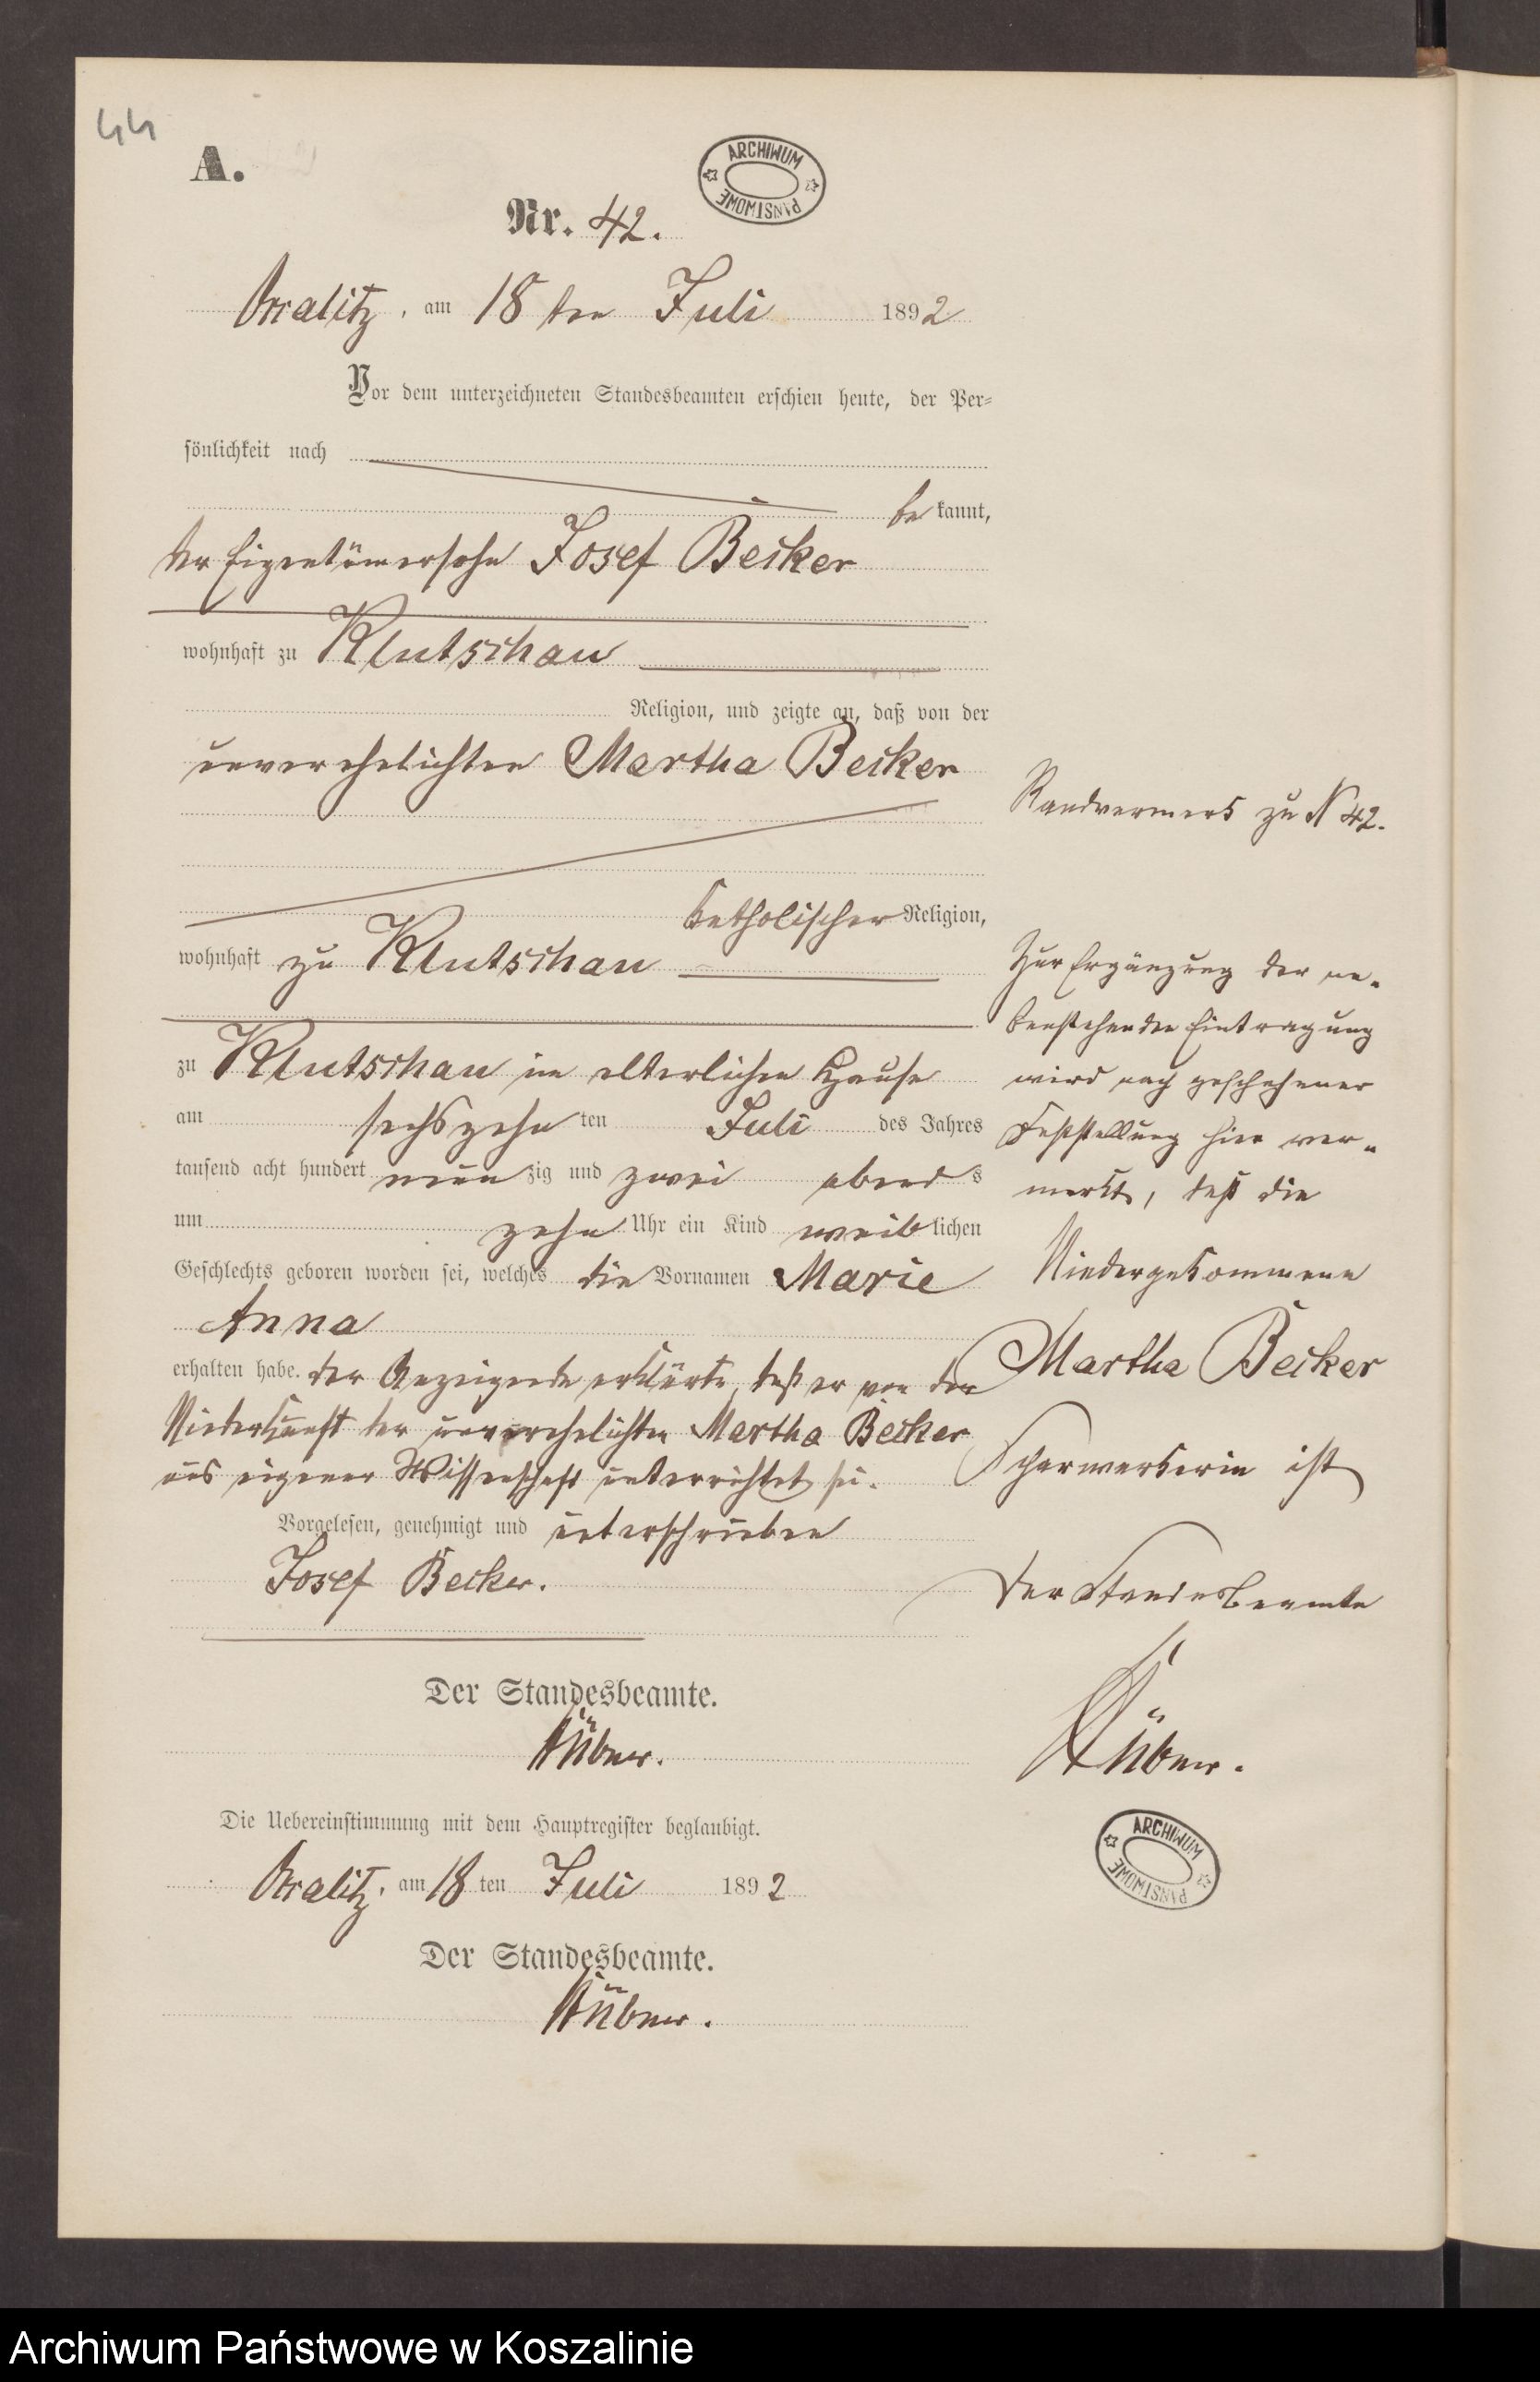 44
A.
ARCHIWUM PAŃSTWOWE
Nr. 42.
am 18 ten Juli 1892
Vor dem unterzeichneten Standesbeamten erschien heute, der Per-
sönlichkeit nach
be kannt,
der Eigentümersohn Josef Becker
wohnhaft zu Klutschau
Religion, und zeigte an, daß von der
unverehelichten Martha Becker
katholischer Religion,
wohnhaft zu Klutschau
zu Klutschau im elterlichen Hause
am sechszehn ten Juli des Jahres
tausend acht hundert neun zig und zwei abend s
um zehn Uhr ein Kind weib lichen
Geschlechts geboren worden sei, welches die Vornamen Marie
Anna
erhalten habe. der Anzeigende erklärte, daß er von der
Niederkunft der unverehelichten Martha Becker
aus eigener Wissenschaft unterrichtet sei.
Vorgelesen, genehmigt und unterschrieben
Josef Becker.
Der Standesbeamte.
Die Uebereinstimmung mit dem Hauptregister beglaubigt.
am 18 ten Juli 1892
Der Standesbeamte.
Randvermerk zu N 42.
Zur Ergänzung der ne-
benstehenden Eintragung
wird nach geschehener
Feststellung hier ver-
merkt, daß die
Niedergekommene
Martha Becker
Scharwerkerin ist
Der Standesbeamte
ARCHIWUM PAŃSTWOWE
Archiwum Państwowe w Koszalinie